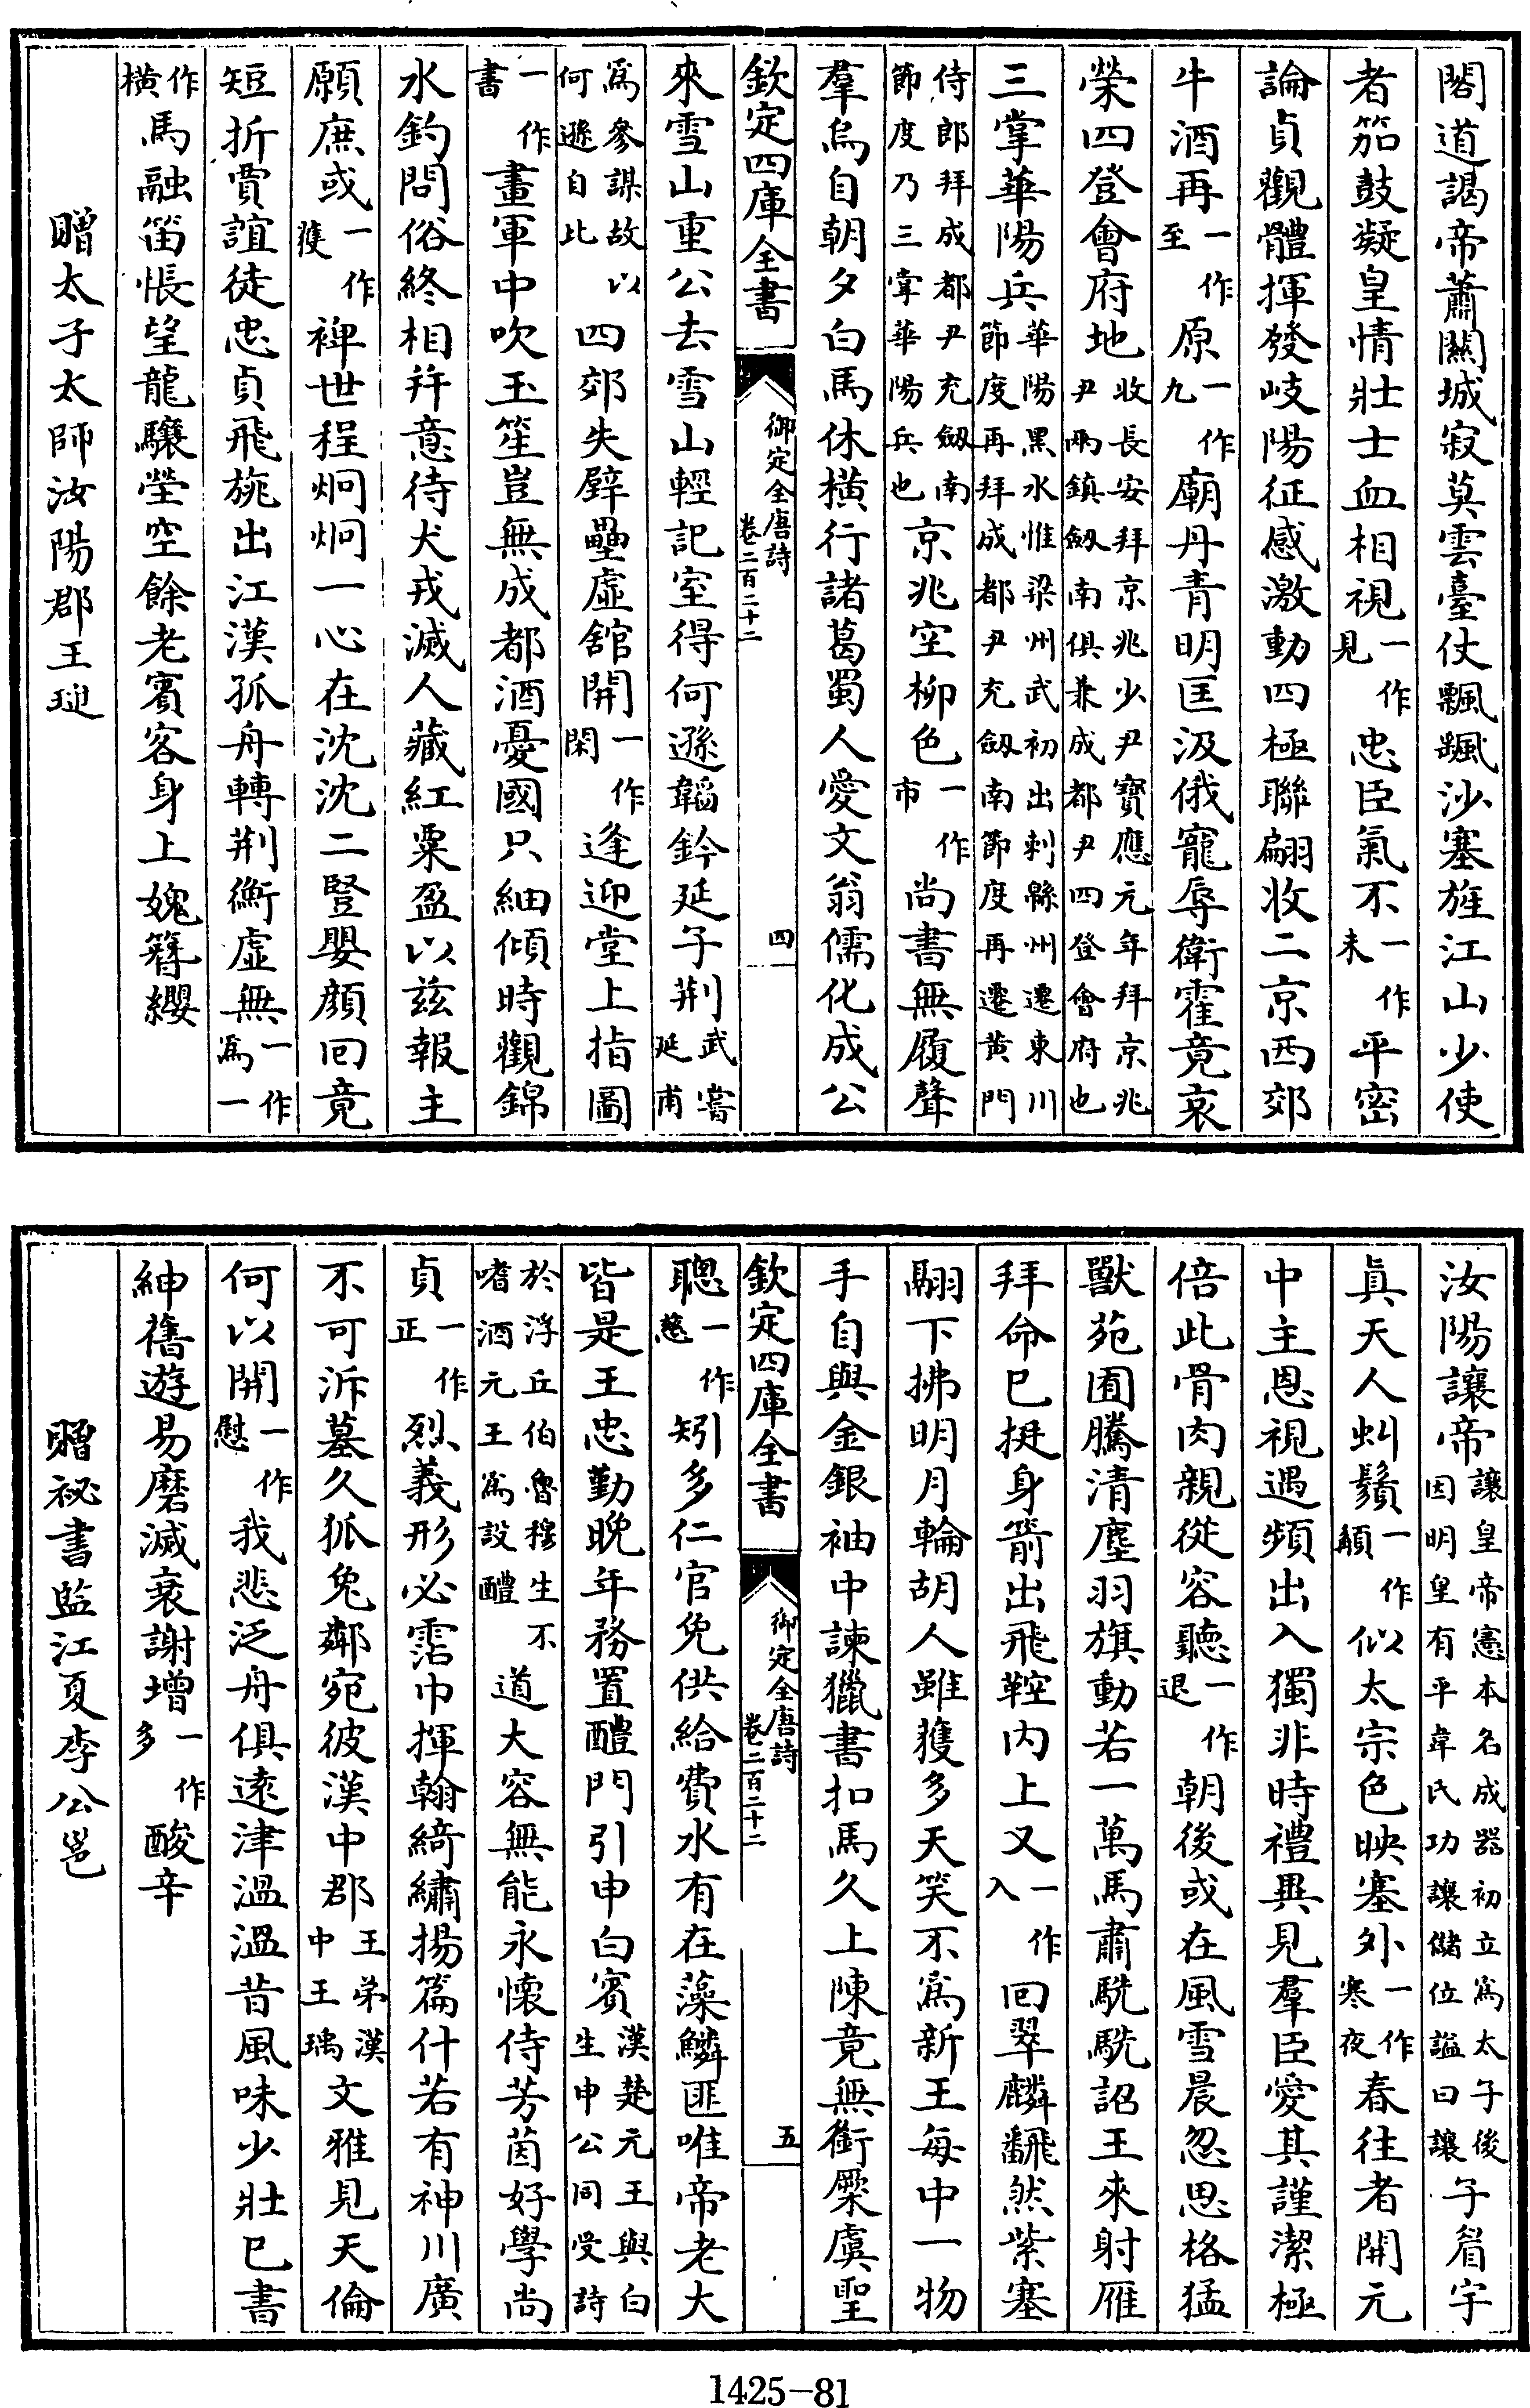 閣道謁帝蕭關城寂莫雲臺仗飄颻沙塞旌江山少使
者笳鼓凝皇情壯士血相視一作見忠臣氣不一作未平密
論貞觀體揮發岐陽征感激動四極聯翩收二京西郊
牛酒再一作至原一作九廟丹青明匡汲俄寵辱衛霍竟哀
榮四登會府地收長安拜京兆少尹寶應元年拜京兆尹兩鎮劔南俱兼成都尹四登會府也
三掌華陽兵華陽黑水惟梁州武初出刺緜州遷東川節度再拜成都尹充劔南節度再遷黃門
侍郎拜成都尹充劔南節度乃三掌華陽兵也京兆空柳色一作市尚書無履聲
羣烏自朝夕白馬休橫行諸葛蜀人愛文翁儒化成公
欽定四庫全書 御定全唐詩卷二百二十二 四
來雪山重公去雪山輕記室得何遜韜鈐延子荆武嘗延甫
爲參謀故以何遜自比四郊失壁壘虛館開一作閑逢迎堂上指圖
一作書畫軍中吹玉笙豈無成都酒憂國只細傾時觀錦
水釣問俗終相幷意待犬戎滅人藏紅粟盈以茲報主
願庶或一作獲裨世程炯炯一心在沈沈二豎嬰顔回竟
短折賈誼徒忠貞飛旐出江漢孤舟轉荆衡虛無一作爲一
作橫馬融笛悵望龍驤塋空餘老賓客身上媿簪纓
贈太子太師汝陽郡王璡
汝陽讓帝讓皇帝憲本名成器初立爲太子後因明皇有平韋氏功讓儲位謚曰讓子眉宇
眞天人虯鬚一作髯似太宗色映塞外一作寒夜春往者開元
中主恩視遇頻出入獨非時禮異見羣臣愛其謹潔極
倍此骨肉親從容聽一作退朝後或在風雪晨忽思格猛
獸苑囿騰清塵羽旗動若一萬馬肅駪駪詔王來射雁
拜命已挺身箭出飛鞚內上又一作入回翠麟翻然紫塞
翮下拂明月輪胡人雖獲多天笑不爲新王每中一物
手自與金銀袖中諫獵書扣馬久上陳竟無銜橜虞聖
欽定四庫全書 御定全唐詩卷二百二十二 五
聰一作慈矧多仁官免供給費水有在藻鱗匪唯帝老大
皆是王忠勤晚年務置醴門引申白賓漢楚元王與白生申公同受詩
於浮丘伯魯穆生不嗜酒元王爲設醴道大容無能永懷侍芳茵好學尚
貞一作正烈義形必霑巾揮翰綺繡揚篇什若有神川廣
不可泝墓久狐兔鄰宛彼漢中郡王弟漢中王瑀文雅見天倫
何以開一作慰我悲泛舟俱遠津溫溫昔風味少壯已書
紳舊遊易磨滅衰謝增一作多酸辛
贈祕書監江夏李公邕
1425-81